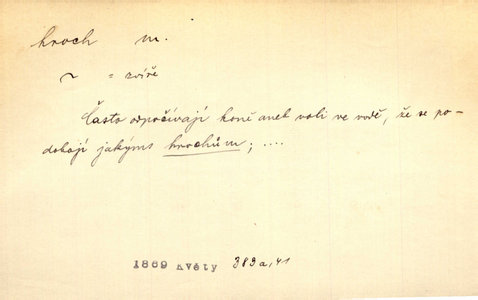 hroch m.
~ = zvíře
Často odpočívají koně aneb voli ve vodě, že se po-
dobají jakýms hrochům; ....
1869 Květy 383a,41